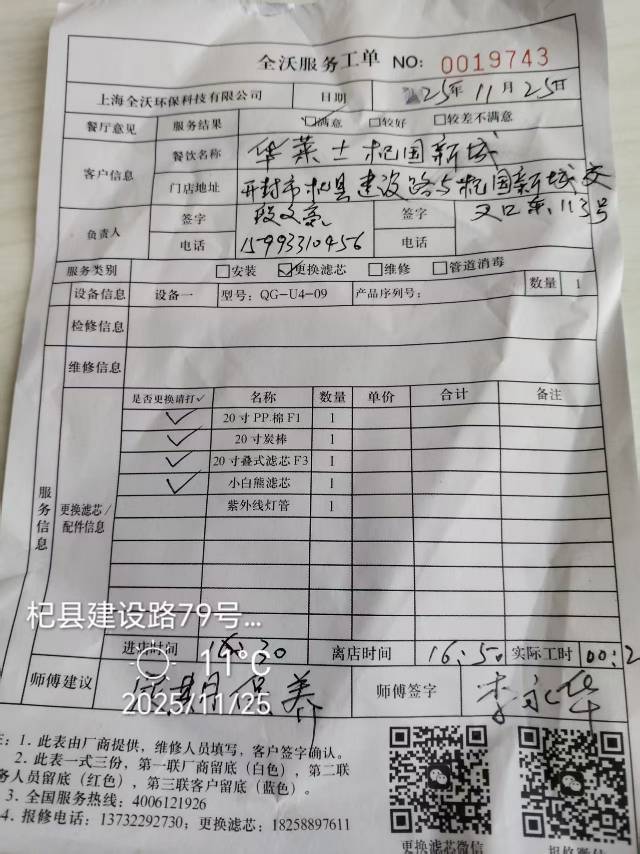 全沃服务工单 NO: 0019743
上海全沃环保科技有限公司 日期 25年11月25日
餐厅意见 服务结果 ☑满意 □较好 □较差不满意
客户信息 餐饮名称 华莱士杞国新城
门店地址 开封市杞县建设路与杞国新城交
叉口东113号
负责人 签字 段文亮 签字
电话 15993310456 电话
服务类别 □安装 ☑更换滤芯 □维修 □管道消毒
设备信息 设备一 型号: QG-U4-09 产品序列号: 数量 1
检修信息
维修信息
服务信息
更换滤芯/配件信息
是否更换请打✓ 名称 数量 单价 合计 备注
✓ 20寸PP棉F1 1
✓ 20寸炭棒 1
✓ 20寸叠式滤芯F3 1
✓ 小白熊滤芯 1
紫外线灯管 1
杞县建设路79号...
进店时间 16:30 离店时间 16:50 实际工时 00:2
11°C
师傅建议 定期保养 师傅签字 李永华
2025/11/25
: 1. 此表由厂商提供，维修人员填写，客户签字确认。
2. 此表一式三份，第一联厂商留底（白色），第二联
务人员留底（红色），第三联客户留底（蓝色）。
3. 全国服务热线: 4006121926
4. 报修电话: 13732292730; 更换滤芯: 18258897611
更换滤芯微信 报修微信